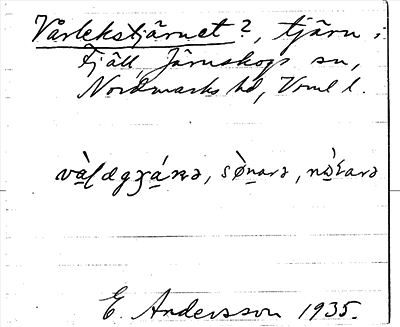 Vårlekstjärnet?, tjärn i
Fjäll, Järnskogs sn,
Nordmarks hd, Vrml l.
sø̀narə, nø̀rarə
E. Andersson 1935.